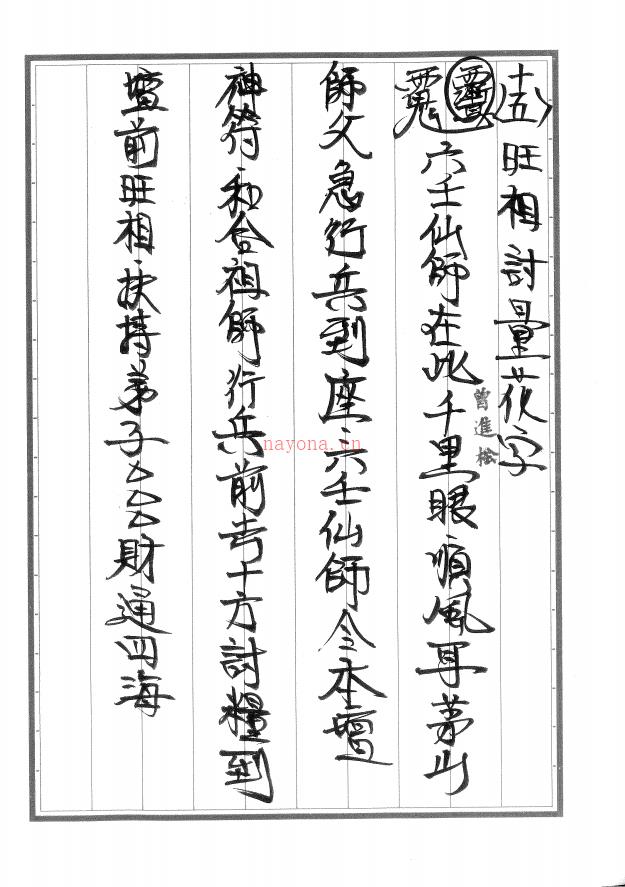 (十五)旺相討量花字
六壬仙師在此千里眼順風耳茅山
師父急行兵到座六壬仙師令本壇
神符和合祖師行兵前去十方討糧到
壇前旺相扶持弟子厶厶財通四海
曾進松
nayona.cn